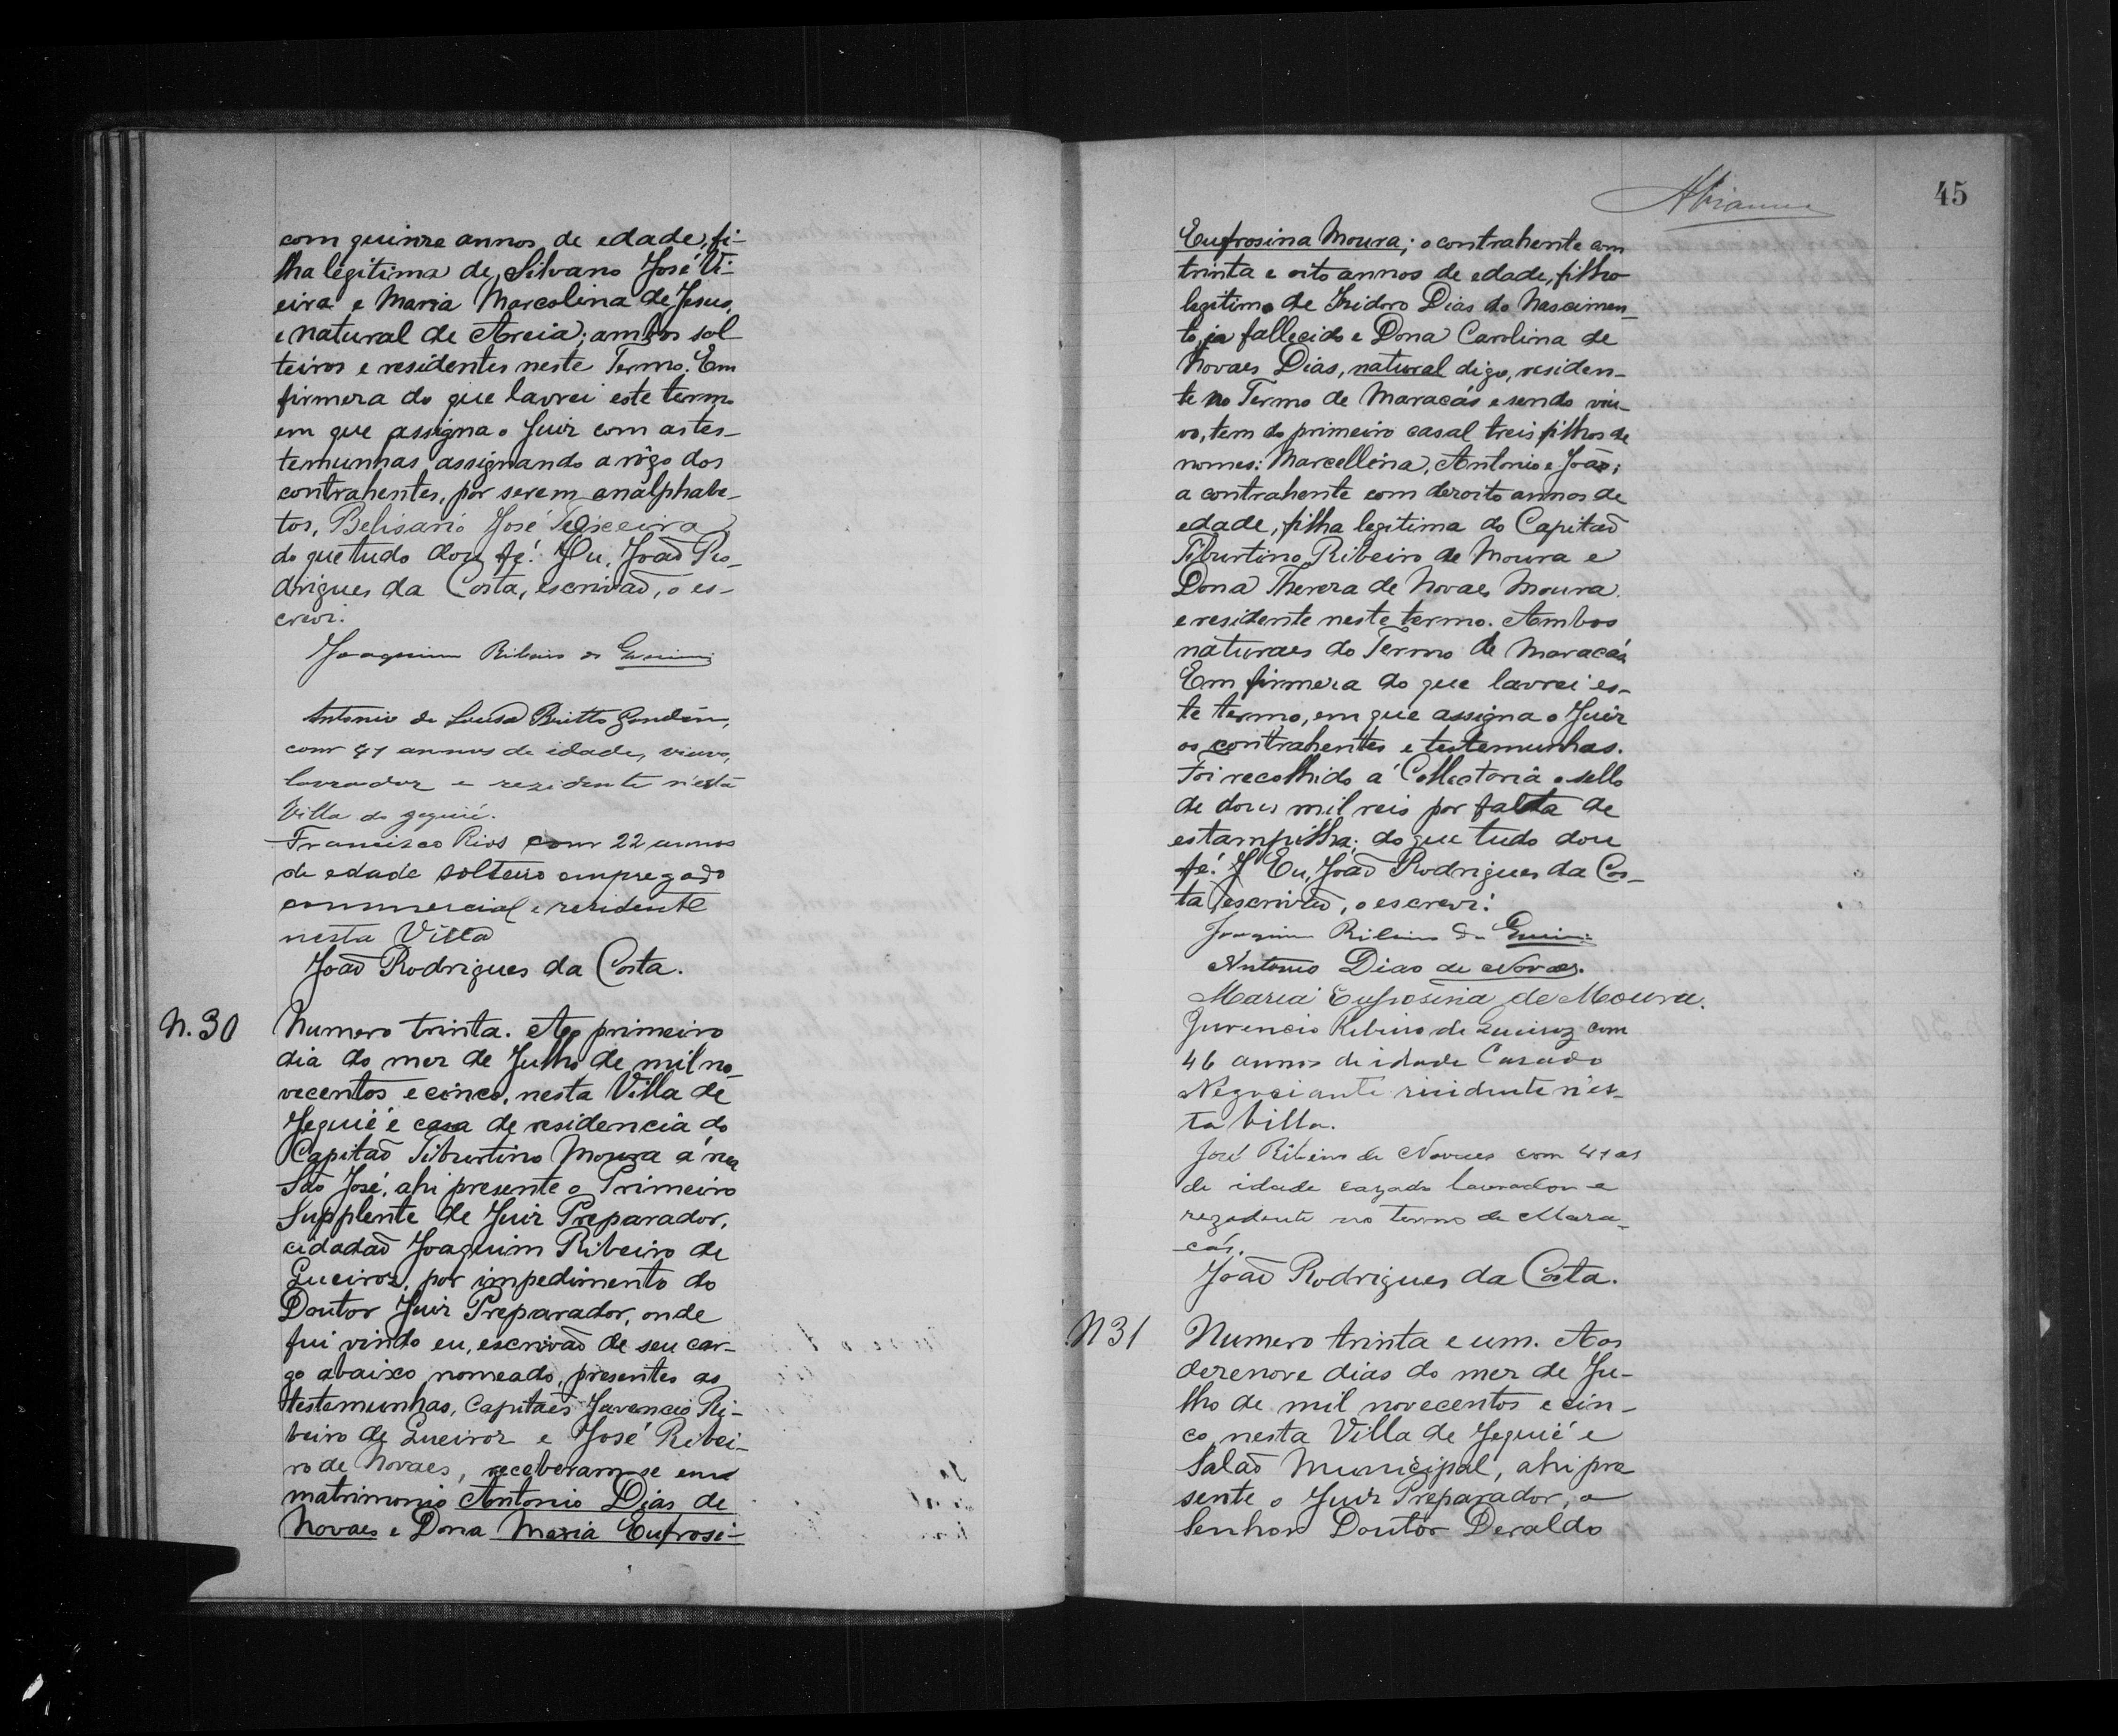 com quinze annos de edade, fi-
lha legitima de Silvano José Vi-
eira e Maria Marcolina de Jesus,
e natural de Areia; ambos sol
teiros e residentes neste Termo. Em
firmeza do que lavrei este termo
em que assigna o Juiz com as tes-
temunhas assignando a rôgo dos
contrahentes, por serem analphabe-
tos, Belisario José Teixeira
do que tudo dou fé. Eu, João Ro-
drigues da Costa, escrivão, o es-
crevi.
Joaquim Ribeiro de Queiroz
Antonio de Sousa Britto Gondim,
com 41 annos de idade, viuvo,
lavrador e rezidente n'esta
Villa de Jequié.
Francisco Rios com 22 annos
de edade solteiro empregado
commercial e residente
nesta Villa
João Rodrigues da Costa.
N. 30
Numero trinta. Ao primeiro
dia do mez de Julho de mil no-
vecentos e cinco, nesta Villa de
Jequié e casa de residencia do
Capitão Tiburtino Moura á rua
São José, ahi presente o Primeiro
Supplente de Juiz Preparador,
cidadão Joaquim Ribeiro de
Queiroz, por impedimento do
Doutor Juiz Preparador, onde
fui vindo eu, escrivão de seu car-
go abaixo nomeado, presentes as
testemunhas, Capitães Juvencio Ri-
beiro de Queiroz e José Ribei-
ro de Novaes, receberam-se em
matrimonio Antonio Dias de
Novaes e Dona Maria Eufrosi-
45
Eufrosina Moura; o contrahente com
trinta e oito annos de edade, filho
legitimo de Izidoro Dias do Nascimen-
to, ja fallecido e Dona Carolina de
Novaes Dias, natural digo, residen-
te no Termo de Maracás e sendo viu-
vo, tem do primeiro casal treis filhos de
nomes: Marcellina, Antonio e João;
a contrahente com dezoito annos de
edade, filha legitima do Capitão
Tiburtino Ribeiro de Moura e
Dona Thereza de Novaes Moura
e residente neste termo. Ambos
naturaes do Termo de Maracás
Em firmeza do que lavrei es-
te termo, em que assigna o Juiz
os contrahentes e testemunhas.
Foi recolhido á Collectoria o sello
de dous mil reis por falta de
estampilha; do que tudo dou
fé. Eu, João Rodrigues da Cos-
ta, escrivão, o escrevi.
Joaquim Ribeiro de Queiroz
Antonio Dias de Novaes.
Maria Eufrosina de Moura.
Juvencio Ribeiro de Queiroz com
46 annos de idade Casado
Negociante risidente n'es-
ta Villa.
José Ribeiro de Novaes com 41 as
de idade cazado lavrador e
rezedente no termo de Mara-
cás.
João Rodrigues da Costa.
N 31
Numero trinta e um. Aos
dezenove dias do mez de Ju-
lho de mil novecentos e cin-
co, nesta Villa de Jequié e
Salão Municipal, ahi pre
sente o Juiz Preparador, o
Senhor Doutor Deraldo